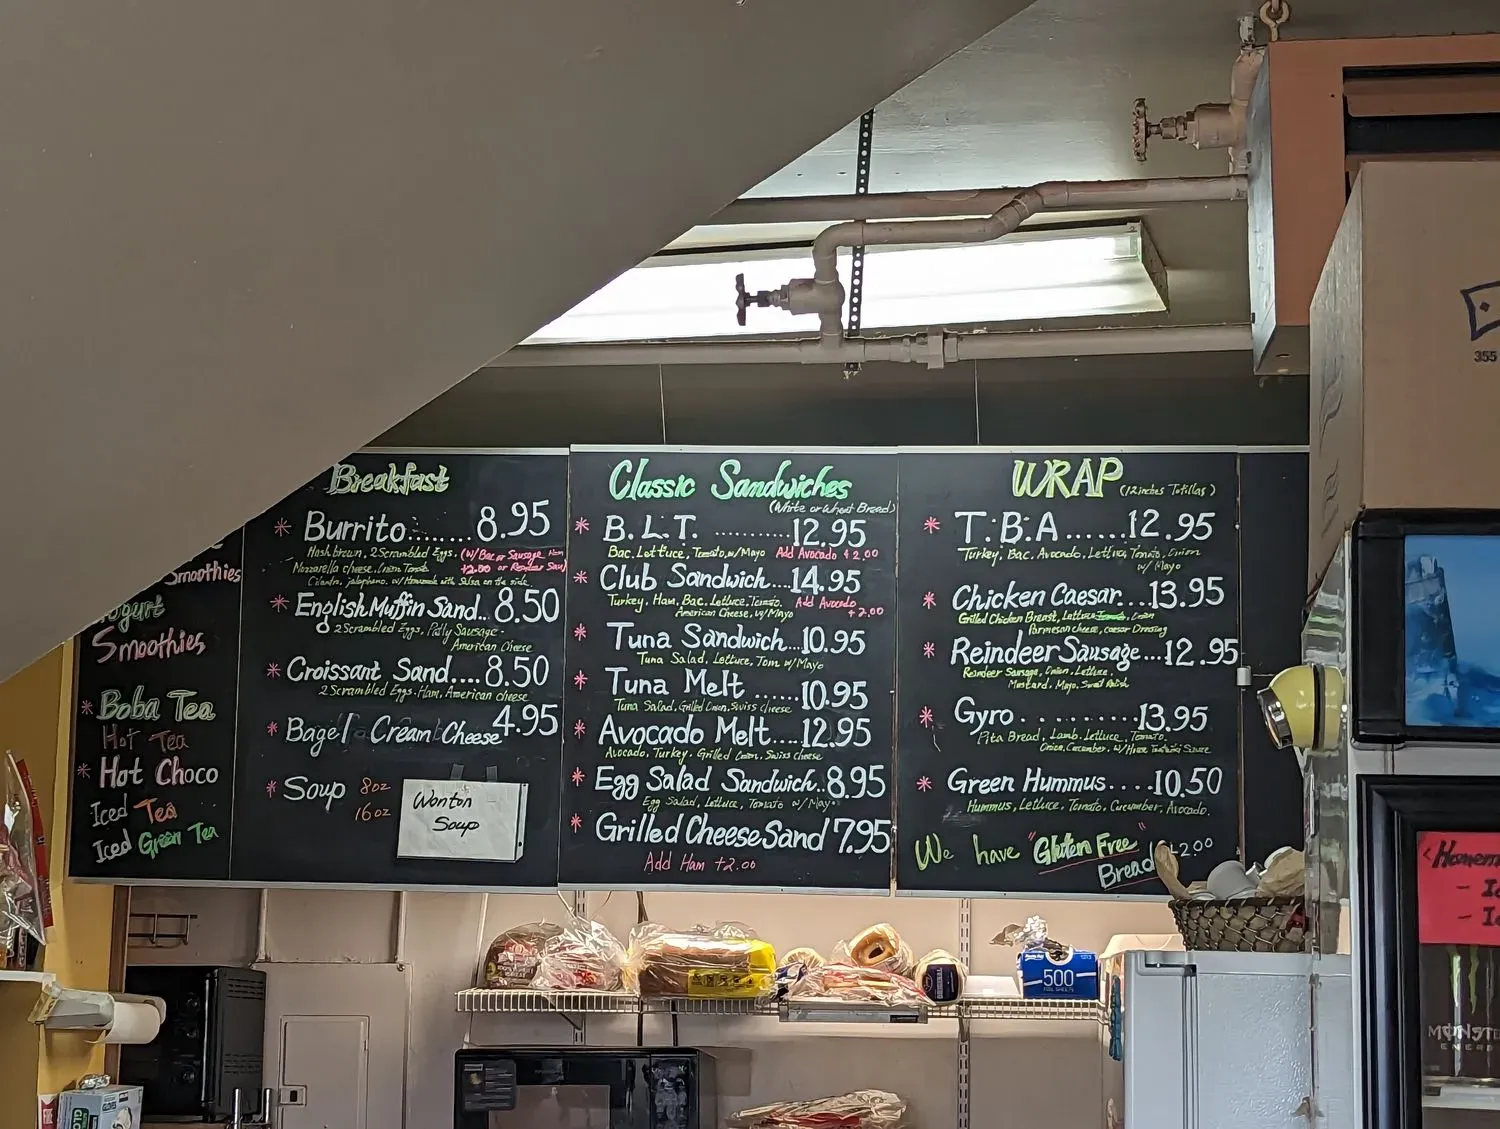 Smoothies
Yogurt
Smoothies
* Boba Tea
Hot Tea
* Hot Choco
Iced Tea
Iced Green Tea
Breakfast
* Burrito........8.95
Hashbrown, 2 Scrambled Eggs. (w/ Bac or Sausage Ham
Mozzarella cheese, Onion Tomato +2.00 or Reindeer Sau
Cilantro, jalapeno. w/ Homemade with Salsa on the side.
* English Muffin Sand..8.50
2 Scrambled Eggs, Patty Sausage
American Cheese
* Croissant Sand....8.50
2 Scrambled Eggs. Ham, American cheese
* Bagel Cream Cheese 4.95
* Soup 8oz
16oz
Wonton
Soup
Classic Sandwiches
(White or Wheat Bread)
* B.L.T. ............12.95
Bac. Lettuce, Tomato, w/ Mayo Add Avocado +2.00
* Club Sandwich...14.95
Turkey, Ham, Bac. Lettuce, Tomato. Add Avocado
American Cheese, w/ Mayo +2.00
* Tuna Sandwich..10.95
Tuna Salad, Lettuce, Tom w/ Mayo
* Tuna Melt ......10.95
Tuna Salad, Grilled Onion, Swiss cheese
* Avocado Melt....12.95
Avocado, Turkey, Grilled Onion, Swiss cheese
* Egg Salad Sandwich..8.95
Egg Salad, Lettuce, Tomato w/ Mayo
* Grilled Cheese Sand 7.95
Add Ham +2.00
WRAP (12 inches Totillas)
* T.B.A......12.95
Turkey, Bac, Avocado, Lettuce, Tomato, Onion
w/ Mayo
* Chicken Caesar...13.95
Grilled Chicken Breast, Lettuce, Onion
Parmesan cheese, caesar Dressing
* Reindeer Sausage...12.95
Reindeer Sausage, Onion, Lettuce,
Mustard, Mayo, Sweet Relish
* Gyro..........13.95
Pita Bread, Lamb. Lettuce, Tomato.
Onion, Cucumber, w/ House Sauce
* Green Hummus....10.50
Hummus, Lettuce, Tomato, Cucumber, Avocado.
We have "Gluten Free"
Bread +2.00
500
355
MONSTE
ENERG